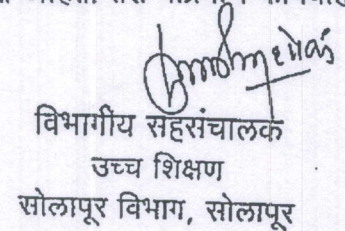 विभागीय सहसंचालक
उच्च शिक्षण
सोलापूर विभाग, सोलापूर